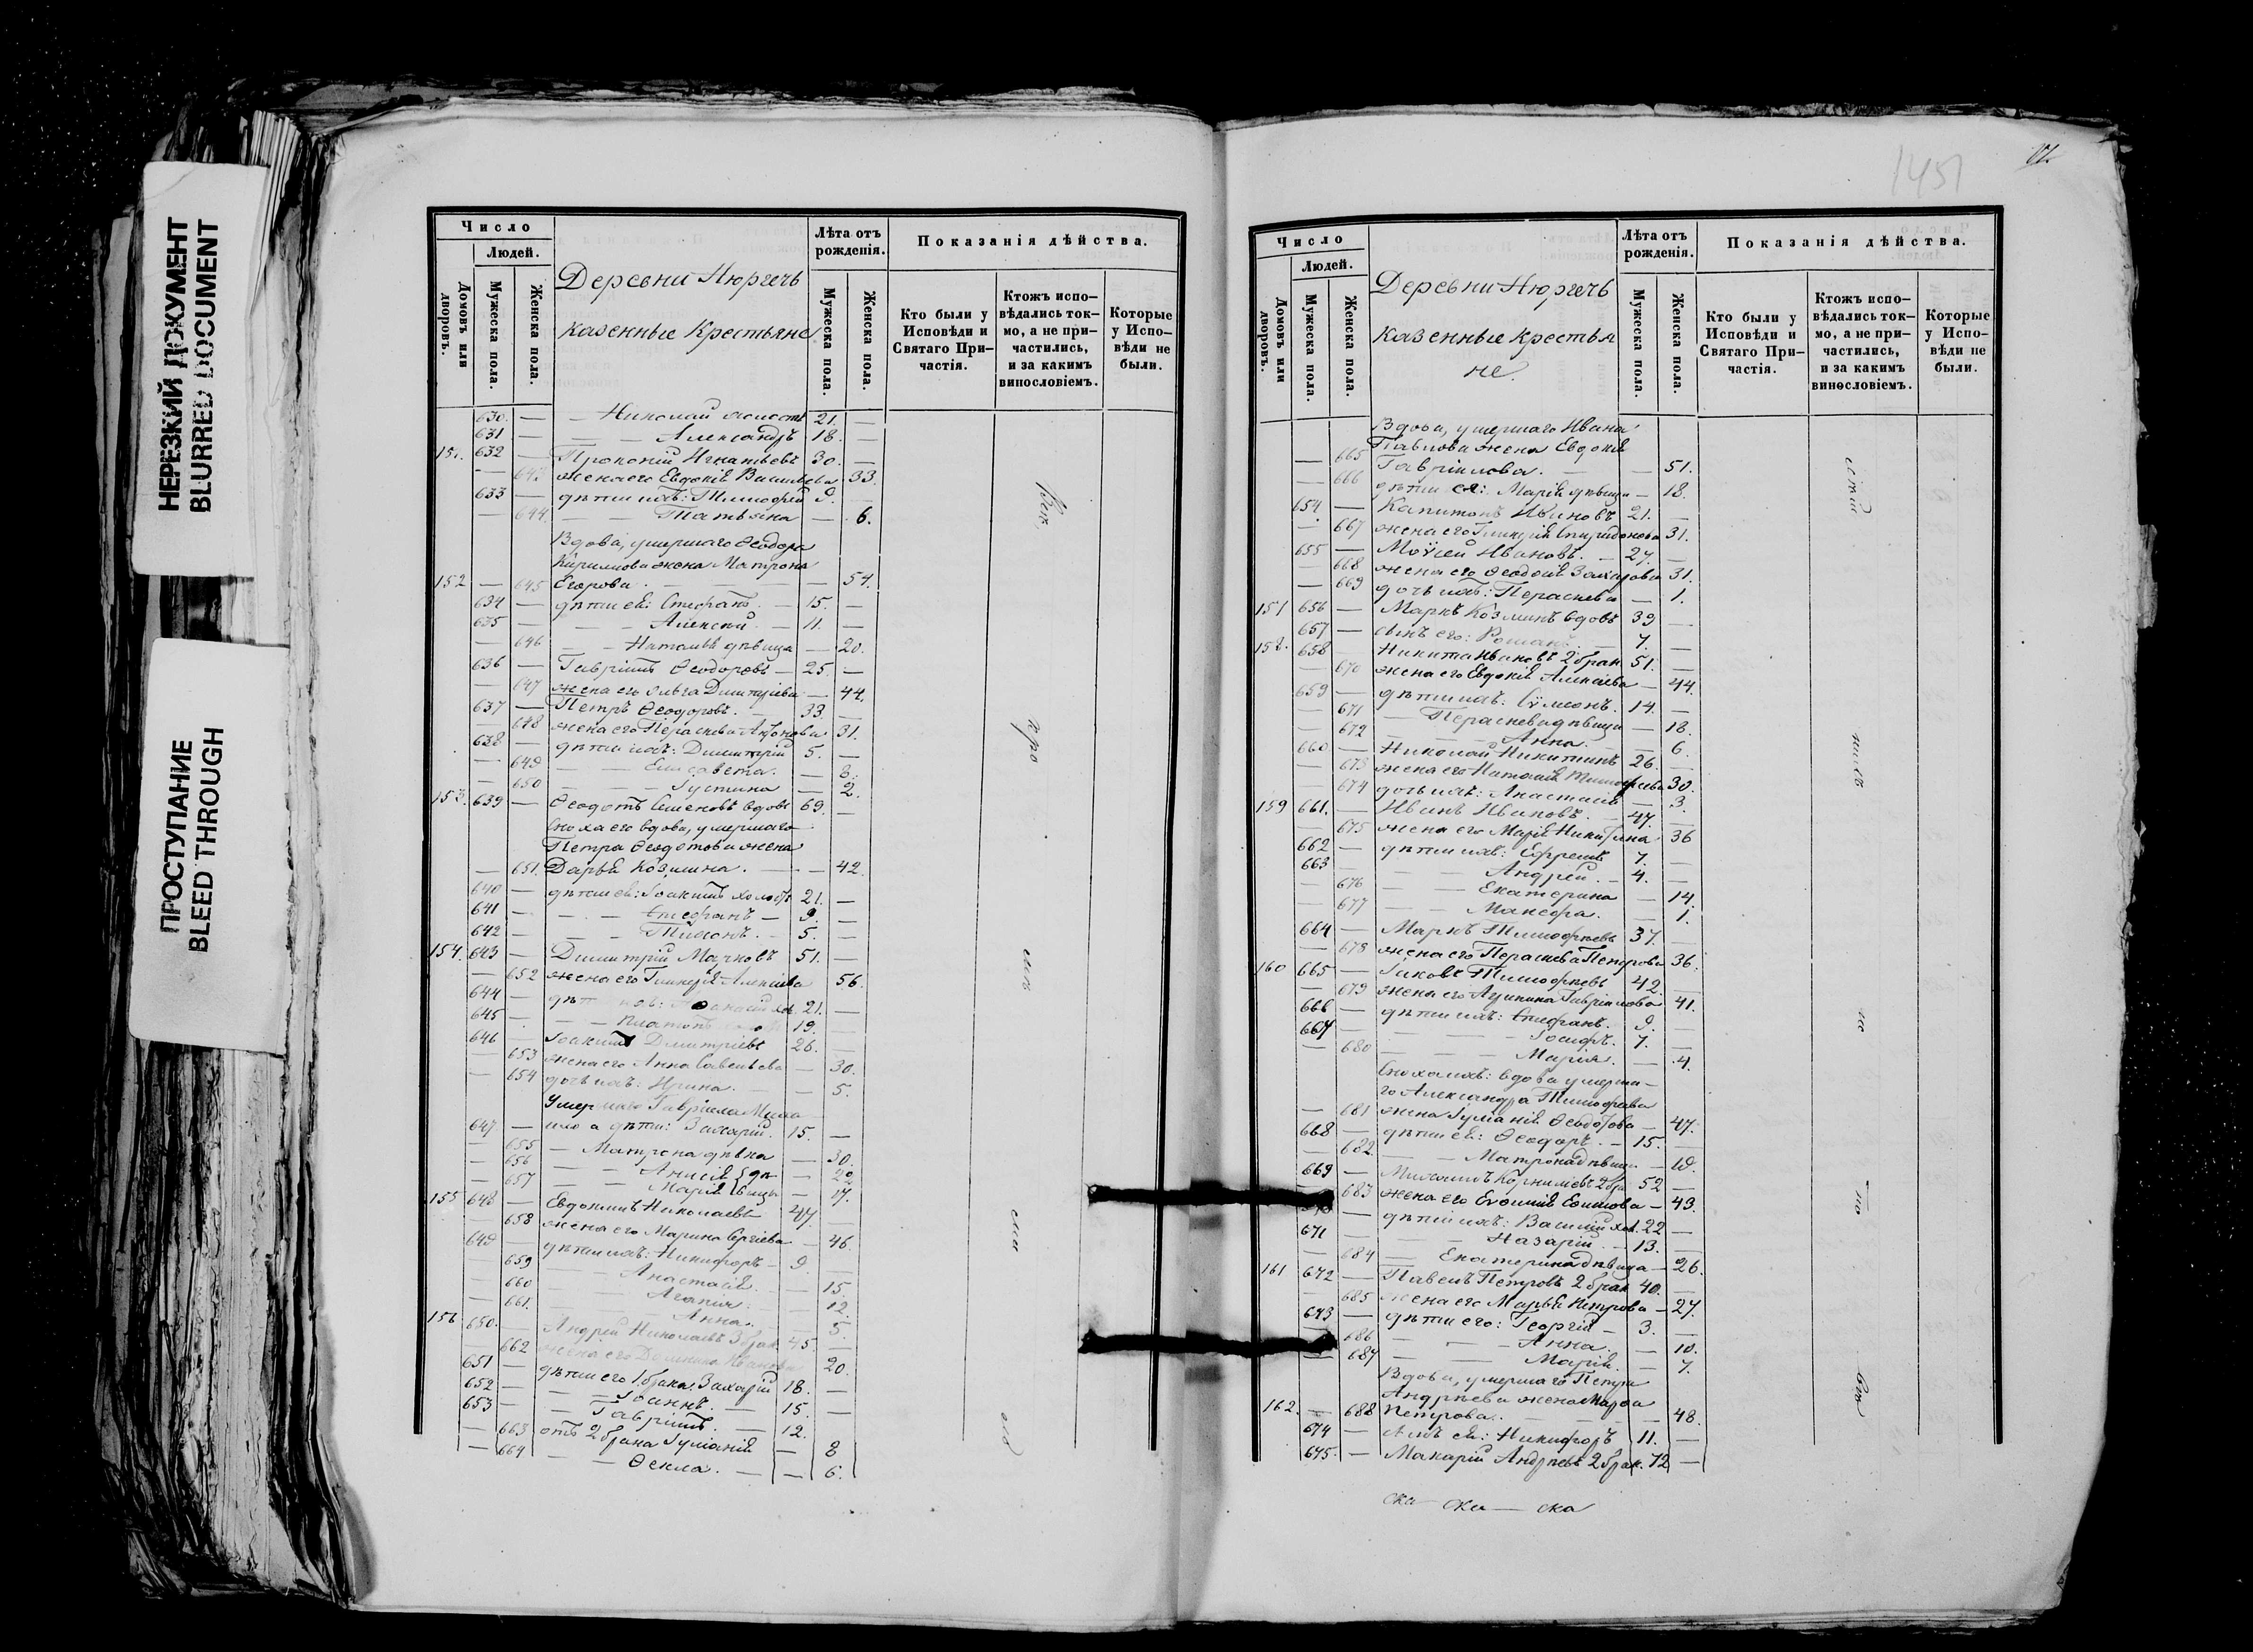 НЕРЕЗКИЙ ДОКУМЕНТ
BLURRED DOCUMENT
ПРОСТУПАНИЕ
BLEED THROUGH
Число
Людей.
Домовъ или дворовъ.
Мужеска пола.
Женска пола.
Деревни Нюргечь
казенные Крестьяне
Лѣта отъ рожденія.
Мужеска пола.
Женска пола.
Показанія дѣйства.
Кто были у Исповѣди и Святаго Причастія.
Ктожъ исповѣдались токмо, а не причастились, и за какимъ винословіемъ.
Которые у Исповѣди не были.
630. — — Николай 21. —
631 — — — Александръ 18. —
151. 632 — Прокопій Игнатьевъ 30. —
— 643 жена его Евдокія Васильева 33.
633 — дѣти ихъ: Тимофей 9. —
— 644. — — Татьяна — 6.
Вдова, умершаго Ѳеодора
Кирилова жена Матрона
152 — 645 Егорова. — 54.
634 — дѣти ея: Стефанъ. — 15. —
635 — — — Алексѣй. — 11. —
— 646 — — Наталья дѣвица — 20.
636 — Гавріилъ Ѳеодоровъ — 25. —
— 647 жена его Ольга Димитріева — 44.
637 — Петръ Ѳеодоровъ. — 33. —
— 648 жена его Параскева 31.
638 — дѣти ихъ: Димитрій 5. —
— 649 — — Елисавета. — 8.
— 650 — — Іустина — 2.
153. 639 — Ѳеодотъ Семеновъ вдовъ 69. —
Сноха его вдова, умершаго
Петра Ѳеодотова жена
— 651. Дарья Козмина. — — 42.
640 — дѣти ея: Іоакимъ холостъ 21. —
641 — — — Стефанъ — 9. —
642 — — — Тихонъ. — 5. —
154. 643 — Димитрій Марковъ 51. —
— 652 жена его Гликерія Алексѣева 56.
644 — 21. —
645 — — — Платонъ 19.
646 — Іоакимъ Димитріевъ 26. —
— 653 жена его Анна Савельева — 30.
— 654 дочь ихъ: Ирина. — 5.
Умершаго Гавріила
647 — дѣти: Захарій. 15. —
— 655 — Матрона дѣвка — 30.
— 656 — — Анисія — 22
— 657 — — Марія — 17.
155 648 — Евдокимъ Николаевъ 47. —
— 658 жена его Марина Сергіева — 46.
649 — дѣти ихъ: Никифоръ — 9. —
— 659 — — Анастасія. — 15.
— 660 — — Агапія. — 12.
— 661. — — Анна. — 5.
156 650. — Андрей Николаевъ 3 брак. 45. —
— 662 жена его Домника Иванова 20.
651 — дѣти его 1 брака: Захарій 18. —
652 — — — Іоаннъ. — 15. —
653 — — Гавріилъ. — 12. —
— 663 отъ 2 брака Іуліанія — 8
— 664 — — Ѳекла. — — 6.
1451
Число
Людей.
Домовъ или дворовъ.
Мужеска пола.
Женска пола.
Деревни Нюргечь
казенные крестья
не.
Лѣта отъ рожденія.
Мужеска пола.
Женска пола.
Показанія дѣйства.
Кто были у Исповѣди и Святаго Причастія.
Ктожъ исповѣдались токмо, а не причастились, и за какимъ винословіемъ.
Которые у Исповѣди не были.
Вдова, умершаго Ивана
Павлова жена Евдокія
— 665 Гавріилова. — — 51.
— 666 дѣти ея: Марія дѣвица — 18.
654 — Капитонъ Ивановъ 21. —
— 667 жена его Гликерія Спиридонова 31.
655 — Моѵсей Ивановъ. — 27. —
— 668 жена его Ѳеодосія Захарова 31.
— 669 дочь ихъ: Параскева — 1.
157 656 — Маркъ Козминъ вдовъ 39 —
657 — сынъ его: Романъ. — 7. —
158. 658 — Никита Ивановъ 2 брак 51. —
— 670 жена его Евдокія Алексѣева — 44.
659 — дѣти ихъ: Сѵмеонъ. 14. —
— 671 — Параскева дѣвица — 18.
— 672 — — Анна. — 6.
660 — Николай Никитинъ 26. —
— 673 жена его Наталія Тимофеева 30.
— 674 дочь ихъ: Анастасія — 3.
159 661. — Иванъ Ивановъ. — 47. —
— 675 жена его Марія Никитина 36
662 — дѣти ихъ: Ефремъ 7. —
663 — — — Андрей. — 4. —
— 676 — — Екатерина — 14.
— 677 — — Манефа. — 1.
664 — Маркъ Тимофеевъ 37. —
— 678 жена его Параскева Петрова 36.
160 665 — Іаковъ Тимофеевъ 42. —
— 679 жена его Акулина Гавріилова 41.
666 — дѣти ихъ: Стефанъ. 9. —
667 — — — Іосифъ. 7. —
— 680 — — Марія. — 4.
Сноха ихъ: вдова умерша-
го Александра Тимофеева
— 681 жена Іуліанія Ѳеодотова — 47.
668 — дѣти ея: Ѳеодоръ. — 15. —
— 682. — — Матрона дѣвица —
669 — Корниловъ 2 бр 52 —
— 683 жена его Евѳимія Ефимова — 43.
— дѣти ихъ: Василій хол. 22 —
671 — — — Назарій. — 13. —
— 684 — Екатерина дѣвица — 26.
161 672 — Павелъ Петровъ 2 брак 40. —
— 685 жена его Марья Петрова — 27.
673 — дѣти его: Георгій — 3. —
— 686 — — Анна. — 10.
— 687 — — Марія. — 7.
Вдова, умершаго Петра
Андреева жена Марѳа
162. — 688 Петрова. — — 48.
674 — сынъ ея: Никифоръ 11. —
675. — Макарій Андреевъ 2 брак. 72 —
ска — ска — ска